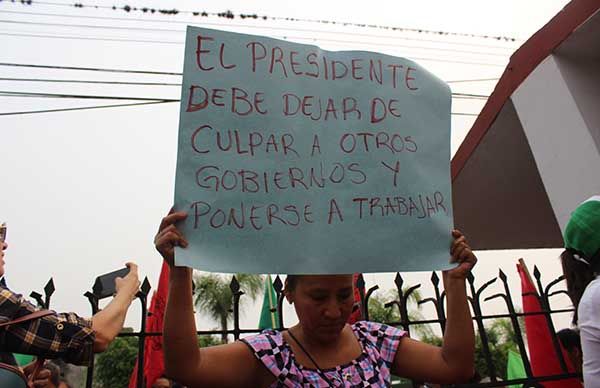 EL PRESIDENTE
DEBE DEJAR DE
CULPAR A OTROS
GOBIERNOS Y
PONERSE A TRABAJAR